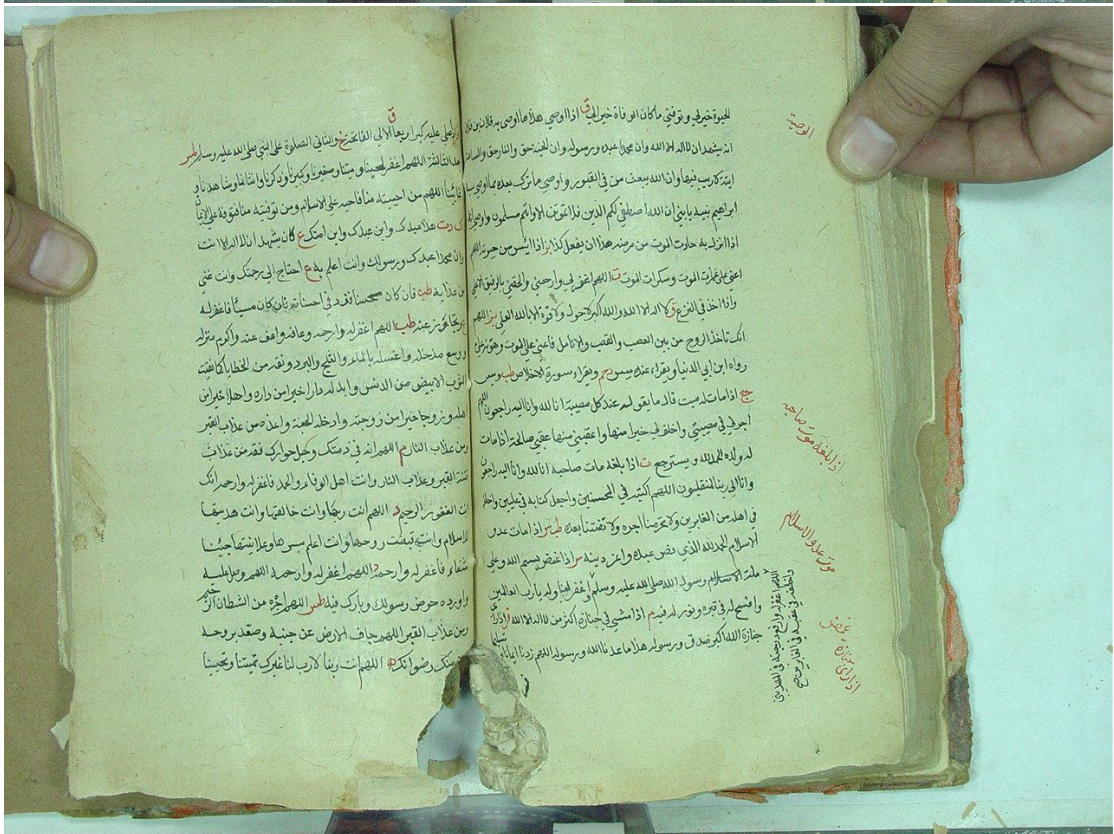 الحيوة خير لي وتوفني ما كان الوفاة خير لي ق اذا اوصى هذا ما اوصى به فلان بن فلان
انه يشهد ان لا اله الا الله وان محمدا عبده ورسوله وان الجنة حق والنار حق وان الساعة
اتية لا ريب فيها وان الله يبعث من في القبور واوصى ما ترك بعده بما اوصى به
ابراهيم بنيه يا بني ان الله اصطفى لكم الدين فلا تموتن الا وانتم مسلمون واوصى
اذا نزل به حادث الموت من مرضه هذا ان يفعل كذا اذا ايس من حيوته اللهم
اعني على غمرات الموت وسكرات الموت ت اللهم اغفر لي وارحمني والحقني بالرفيق الاعلى
واذا اخذ في النزع لا اله الا الله والله اكبر لا حول ولا قوة الا بالله العلي اللهم
انك تاخذ الروح من بين العصب والقصب والانامل فاعني على الموت وهونه علي
رواه ابن ابي الدنيا ويقراء عنده يس ويقراء سورة الاخلاص طب ويس
اذا مات لميت قال ما يقول عند كل مصيبة انا لله وانا اليه راجعون اللهم
اجرني في مصيبتي واخلف لي خيرا منها واعقبني منها عقبى صالحة اذا مات
له ولد الحمد لله ويسترجع ت اذا بلغه مات صاحبه انا لله وانا اليه راجعون
وانا الى ربنا لمنقلبون اللهم اكتبه في المحسنين واجعل كتابه في عليين واخلفه
في اهله من الغابرين ولا تحرمنا اجره ولا تفتنا بعده طب اذا مات عدو
الاسلام الحمد لله الذي نصر عبده واعز دينه اذا غمض بسم الله وعلى
ملة الاسلام رسول الله صلى الله عليه وسلم اغفر لنا وله يا رب العالمين
وافسح له في قبره ونور له فيه م اذا مشى في جنازة اكثر من لا اله الا الله
جنازة الله اكبر صدق ورسوله هذا ما عدنا الله ورسوله اللهم زدنا ايمانا
الوصية
اذا بلغه موت صاحبه
موت عدو الاسلام
اذا راى جنازة
اللهم اغفر له وارفع درجته في المهديين
واخلفه في عقبه في الغابرين
صلى عليه كبر اربعا الاولى الفاتحة والثاني الصلوة على النبي صلى الله عليه وسلم
الثالثة اللهم اغفر لحينا وميتنا وصغيرنا وكبيرنا وذكرنا وانثانا وشاهدنا و
غائبنا اللهم من احييته منا فاحيه على الاسلام ومن توفيته منا فتوفه على الايمان
عبدك وابن عبدك وابن امتك كان يشهد ان لا اله الا انت
وان محمدا عبدك ورسولك وانت اعلم به احتاج الى رحمتك وانت غني
عن عذابه طب فان كان محسنا فزد في احسانه وان كان مسيئا فاغفر له
وتجاوز عنه طب اللهم اغفر له وارحمه وعافه واعف عنه واكرم منزله
ووسع مدخله واغسله بالماء والثلج والبرد ونقه من الخطايا كما نقيت
الثوب الابيض من الدنس وابدله دارا خيرا من داره واهلا خيرا من
اهله وزوجا خيرا من زوجته وادخله الجنة واعذه من عذاب القبر
ومن عذاب النار م اللهم انه في ذمتك وحبل جوارك فقه من عذاب
فتنة القبر وعذاب النار وانت اهل الوفاء والحمد فاغفر له وارحمه انك
انت الغفور الرحيم د اللهم انت ربها وانت خالقها وانت هديتها
للاسلام وانت قبضت روحها وانت اعلم بسرها وعلانيتها جئنا
شفعاء فاغفر له وارحم د اللهم اغفر له وارحمه اللهم وصل عليه
واورده حوض رسولك وبارك فيه طس اللهم اجره من الشيطان
ومن عذاب القبر اللهم جاف الارض عن جنبه وصعد بروحه
منك رضوانك اللهم انت ربنا لا رب لنا غيرك تميتنا وتحيينا